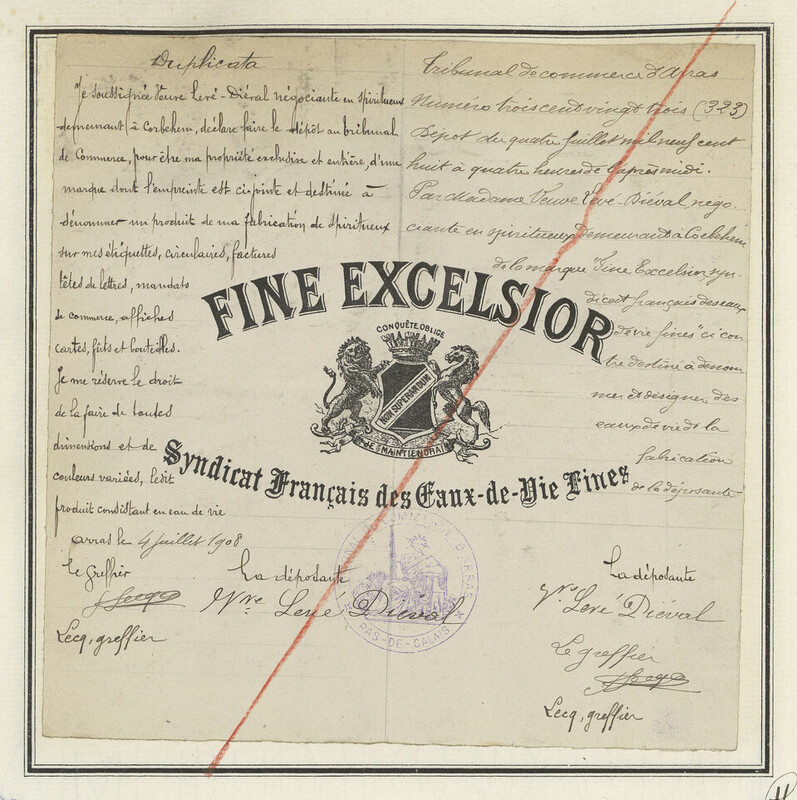 Duplicata
Je soussignée Veuve Levé-Diéval négociante en spiritueux
demeurant à Corbehem, déclare faire le dépôt au tribunal
de Commerce, pour être ma propriété exclusive et entière, d'une
marque dont l'empreinte est ci-jointe et destinée à
dénommer un produit de ma fabrication de spiritueux
sur mes étiquettes, circulaires, factures
têtes de lettres, mandats
de commerce, affiches
cartes, fûts et bouteilles.
Je me réserve le droit
de la faire de toutes
dimensions et de
couleurs variées, ledit
produit consistant en eau de vie
Arras le 4 Juillet 1908
Le Greffier
La déposante
Vve Levé Diéval
Lecq, greffier
Tribunal de commerce d'Arras
Numéro trois cent vingt trois (323)
Dépôt du quatre Juillet mil neuf cent
huit à quatre heures de l'après midi.
Par Madame Veuve Levé-Diéval négo
ciante en spiritueux demeurant à Corbehem
de la marque "Fine Excelsior syn-
dicat français des eaux
de vie fines" ci con
tre destiné à dénom
mer et désigner des
eaux de vie de la
fabrication
de la déposante
La déposante
Vve Levé Diéval
Le greffier
Lecq, greffier
FINE EXCELSIOR
CONQUÊTE OBLIGE
NON SUPERANDUM
JE MAINTIENDRAI
Syndicat Français des Eaux-de-Vie Fines
TRIBUNAL DE COMMERCE D'ARRAS
PAS-DE-CALAIS